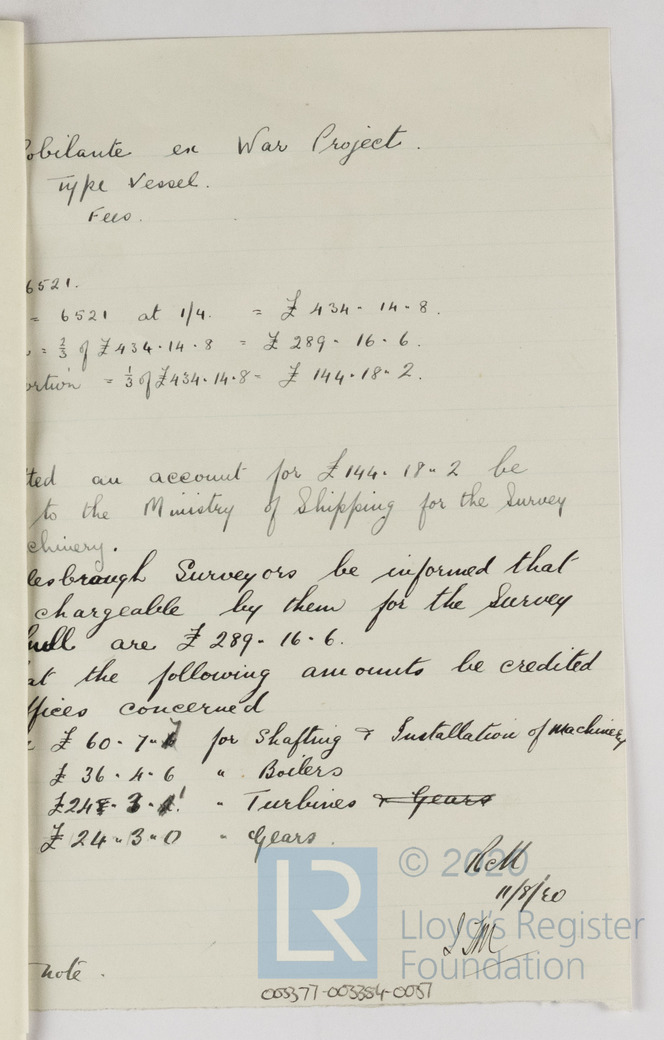 obilante ex War Project.
Type Vessel.
Fees.
6521.
= 6521 at 1/4. = £ 434-14-8.
= 2/3 of £434-14-8 = £ 289-16-6.
ortion = 1/3 of £434-14-8 = £ 144-18-2.
ted an account for £144-18-2 be
to the Ministry of Shipping for the Survey
chinery.
lesbrough Surveyors be informed that
chargeable by them for the Survey
hull are £ 289-16-6.
at the following amounts be credited
ffices concerned
£ 60-7- for Shafting & Installation of Machinery
£ 36-4-6 " Boilers
£24 - 3 - " Turbines & Gears
£ 24-3-0 " Gears.
RcM
11/8/20
note.
© 2020
Lloyd's Register
Foundation
LR
003377-003384-0051